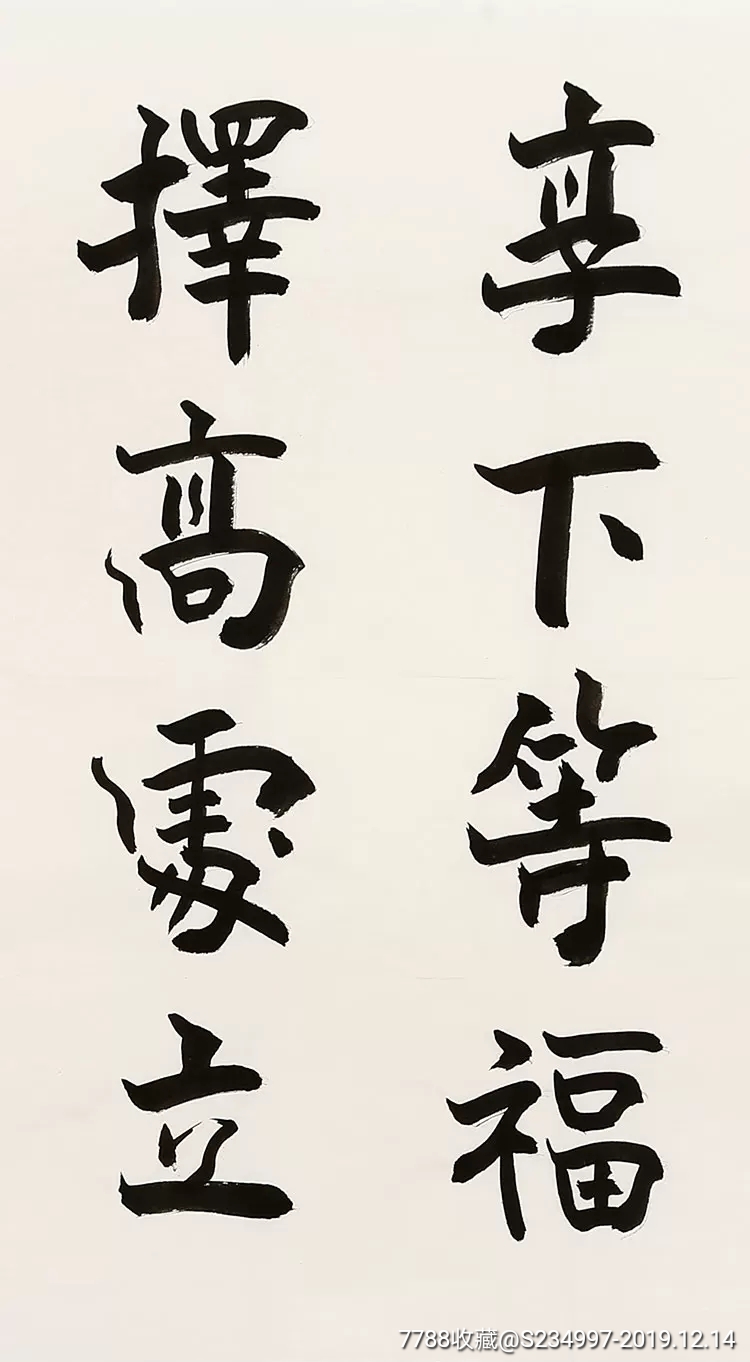 享下等福
擇高處立
7788收藏@S234997-2019.12.14